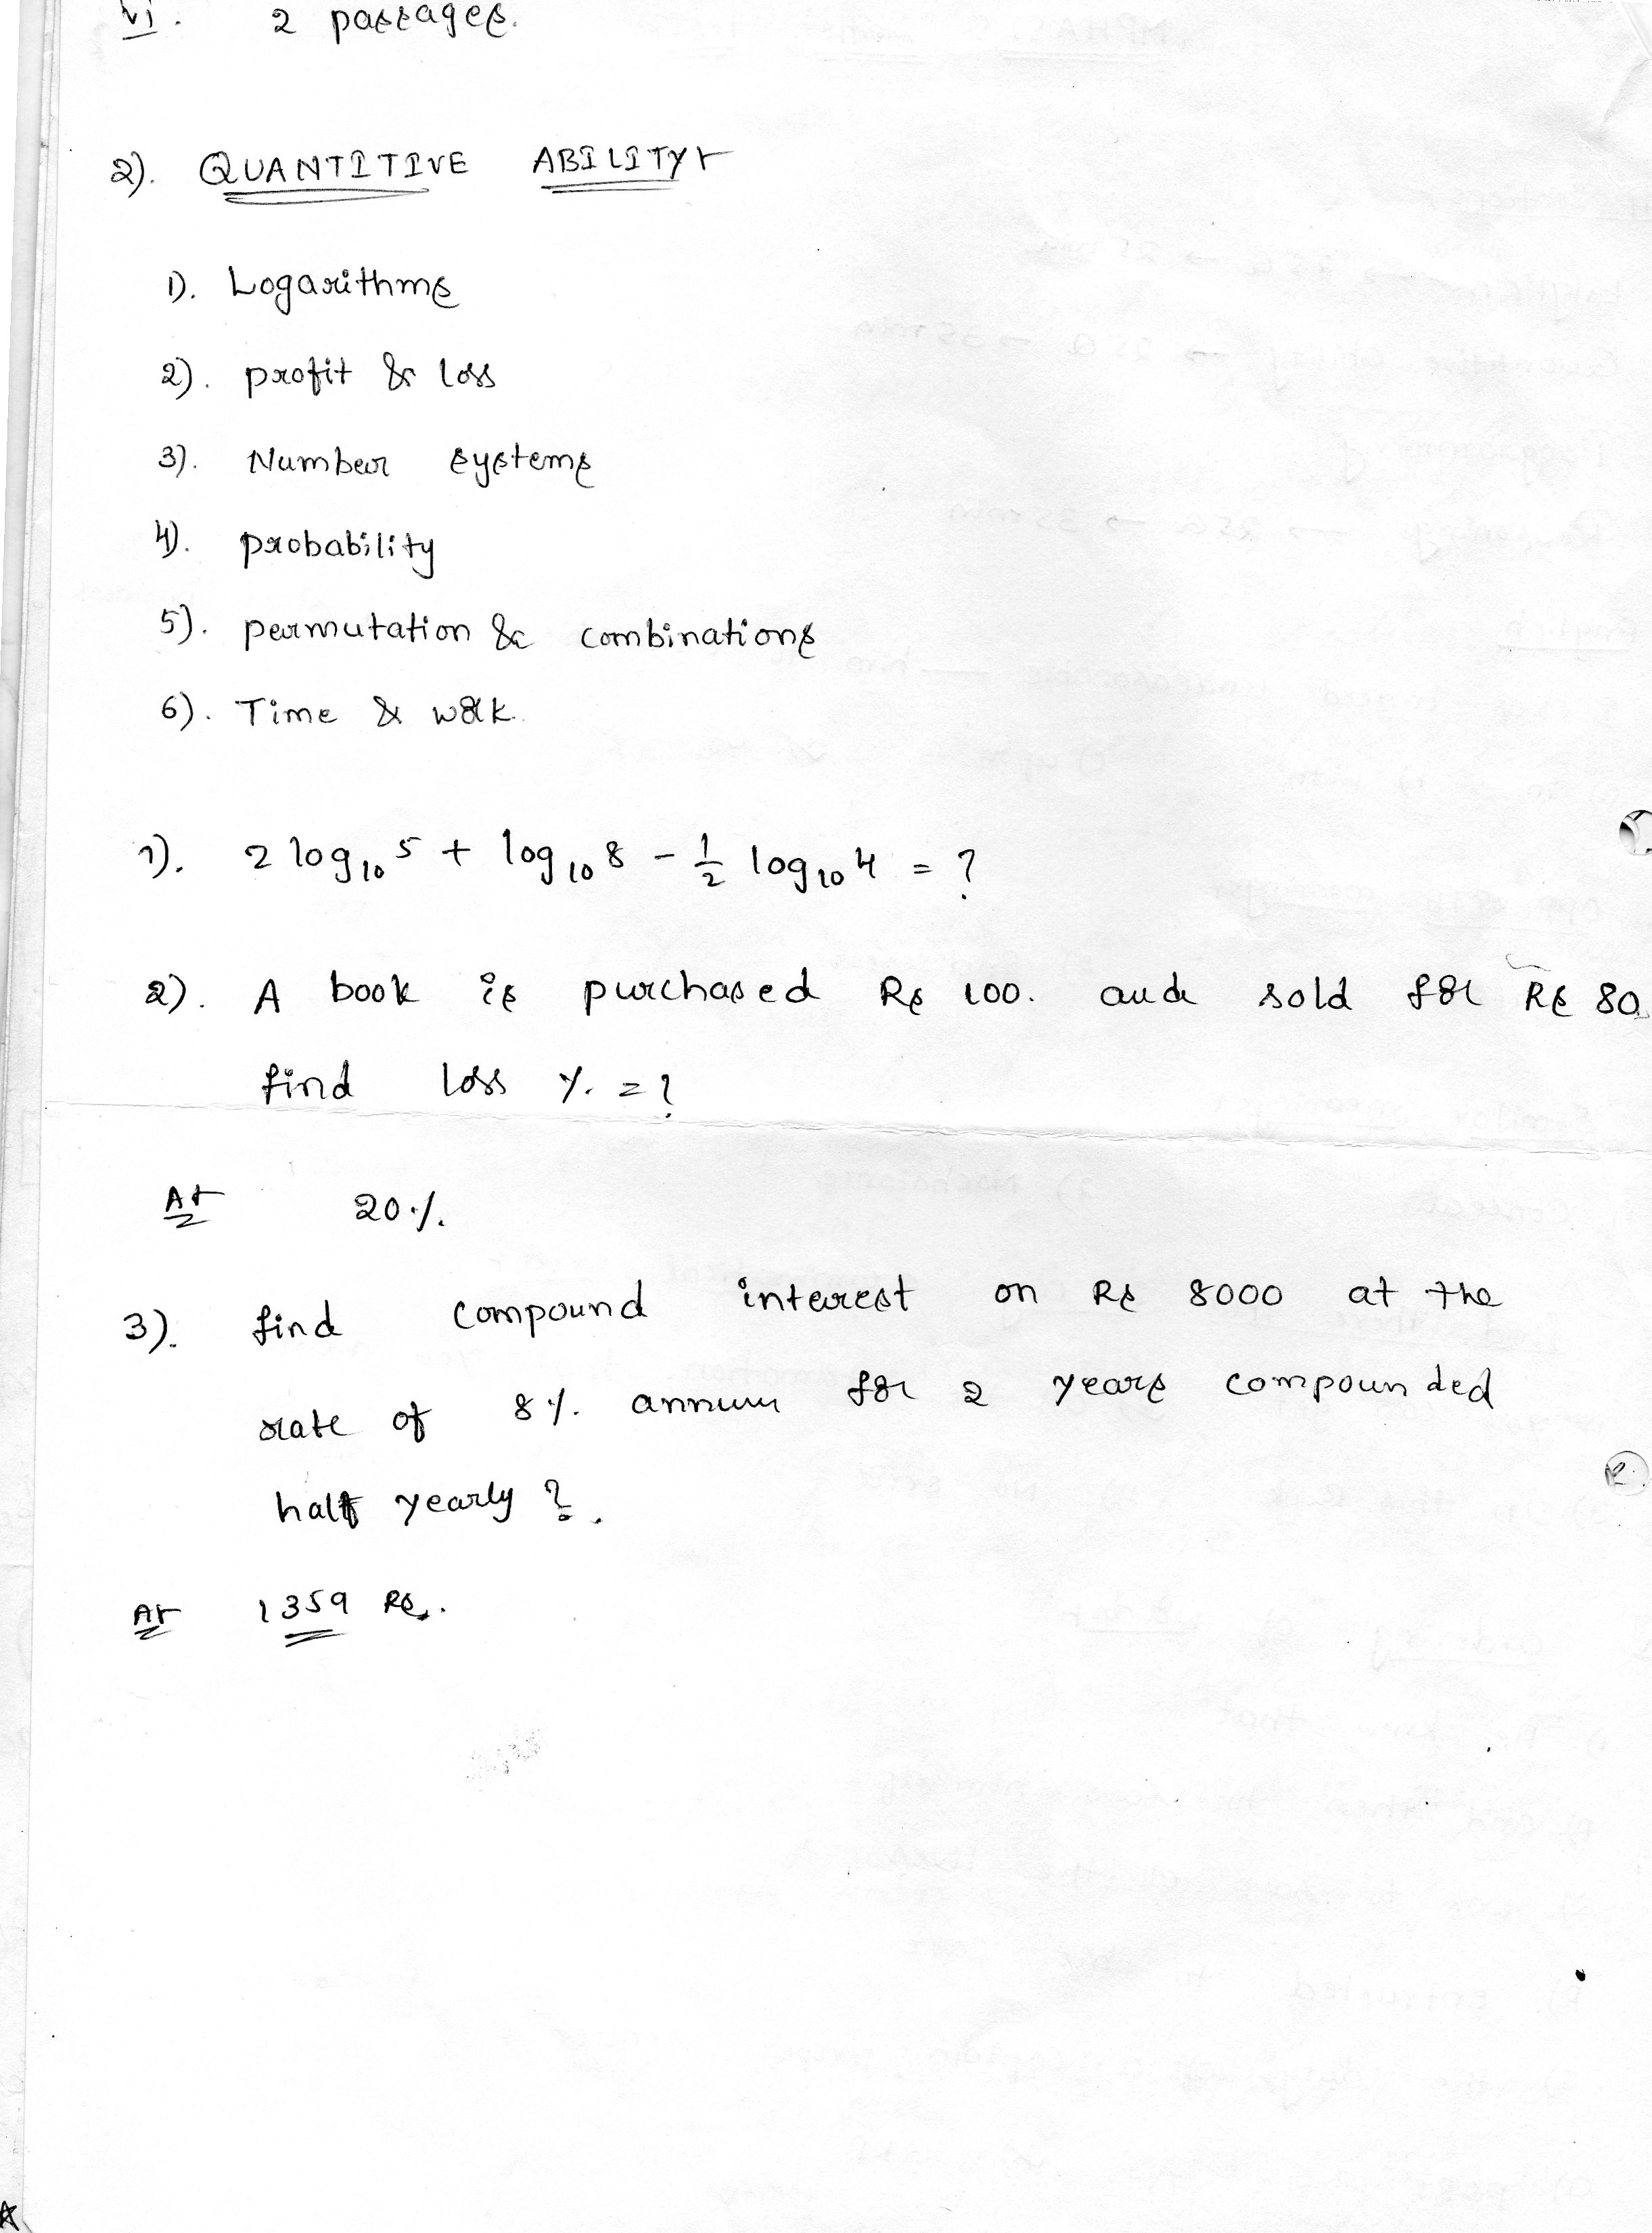 vi. 2 passages.
2). QUANTITIVE ABILITY:-
1). Logarithms
2). profit & loss
3). Number systems
4). probability
5). permutation & combinations
6). Time & work.
1). 2 log₁₀ 5 + log₁₀ 8 - 1/2 log₁₀ 4 = ?
2). A book is purchased Rs 100. and sold for Rs 80
find loss % = ?
A:- 20%.
3). find compound interest on Rs 8000 at the
rate of 8%. annum for 2 years compounded
half yearly ?.
A:- 1359 Rs.